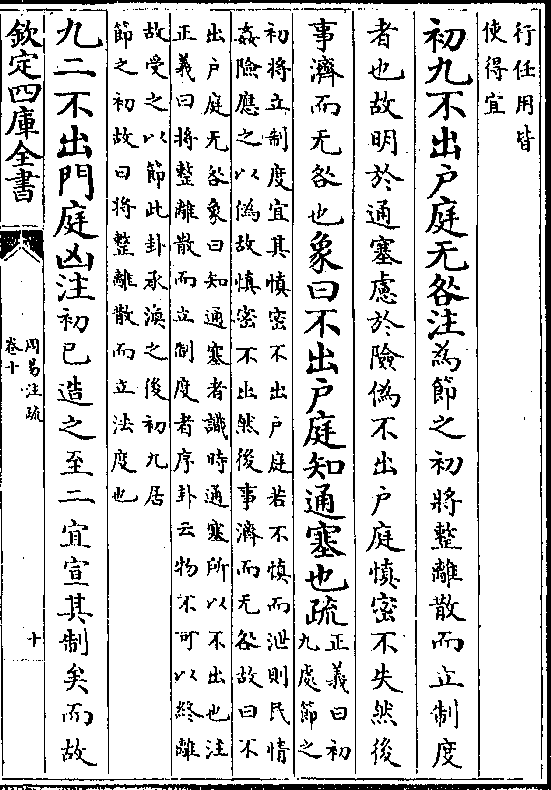 行任用皆
使得宜
初九不出戶庭无咎注為節之初將整離散而立制度
者也故明於通塞慮於險偽不出戶庭慎密不失然後
事濟而无咎也象曰不出戶庭知通塞也疏正義曰初
九處節之
初將立制度宜其慎密不出戶庭若不慎而泄則民情
姦險應之以偽故慎密不出然後事濟而无咎故曰不
出戶庭无咎象曰知通塞者識時通塞所以不出也注
正義曰將整離散而立制度者序卦云物不可以終離
故受之以節此卦承渙之後初九居
節之初故曰將整離散而立法度也
九二不出門庭凶注初已造之至二宜宣其制矣而故
欽定四庫全書
周易注疏
卷十
十